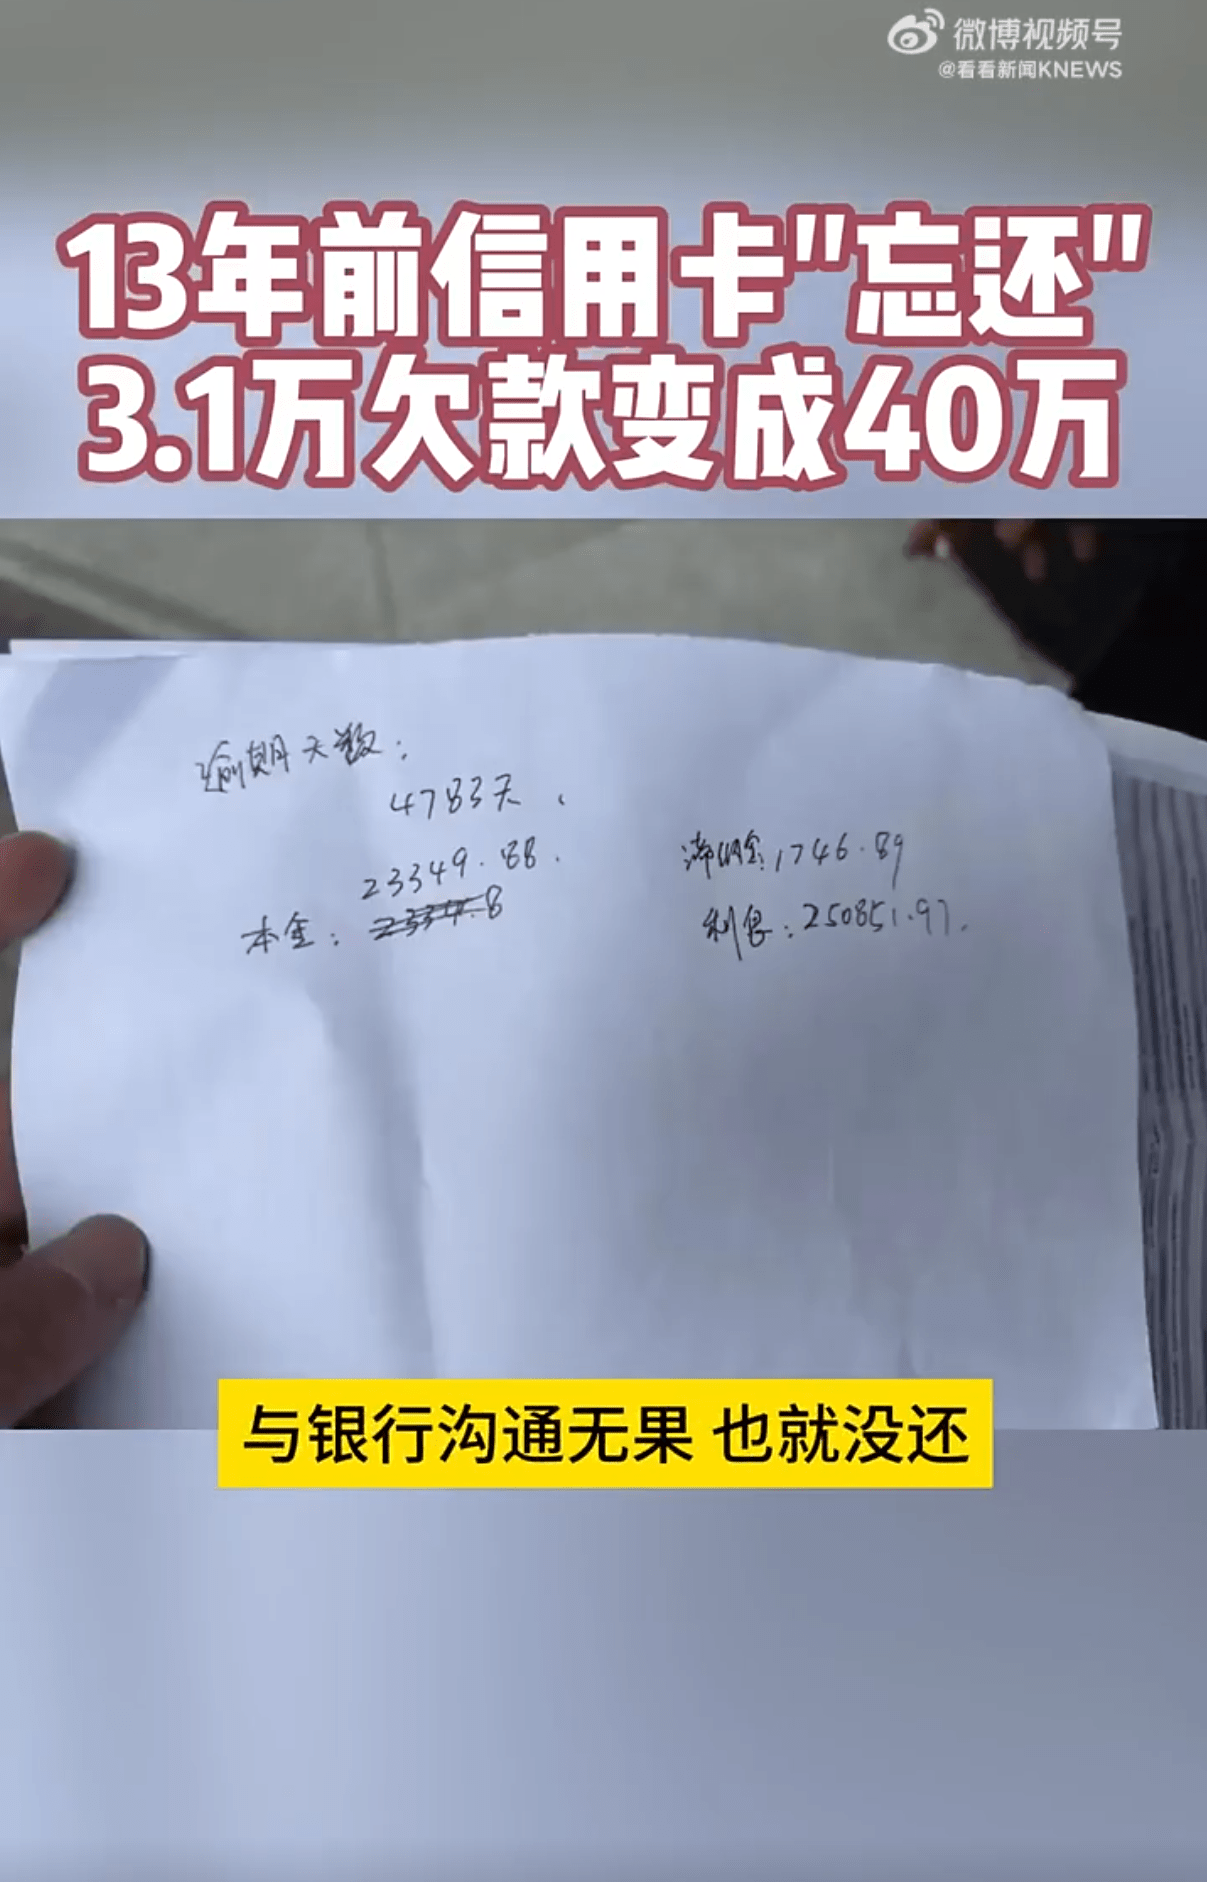 微博视频号
@看看新闻KNEWS
13年前信用卡"忘还"
3.1万欠款变成40万
逾期天数：
4783天
23349.88
本金：
滞纳金：1746.89
利息：250851.97
与银行沟通无果 也就没还